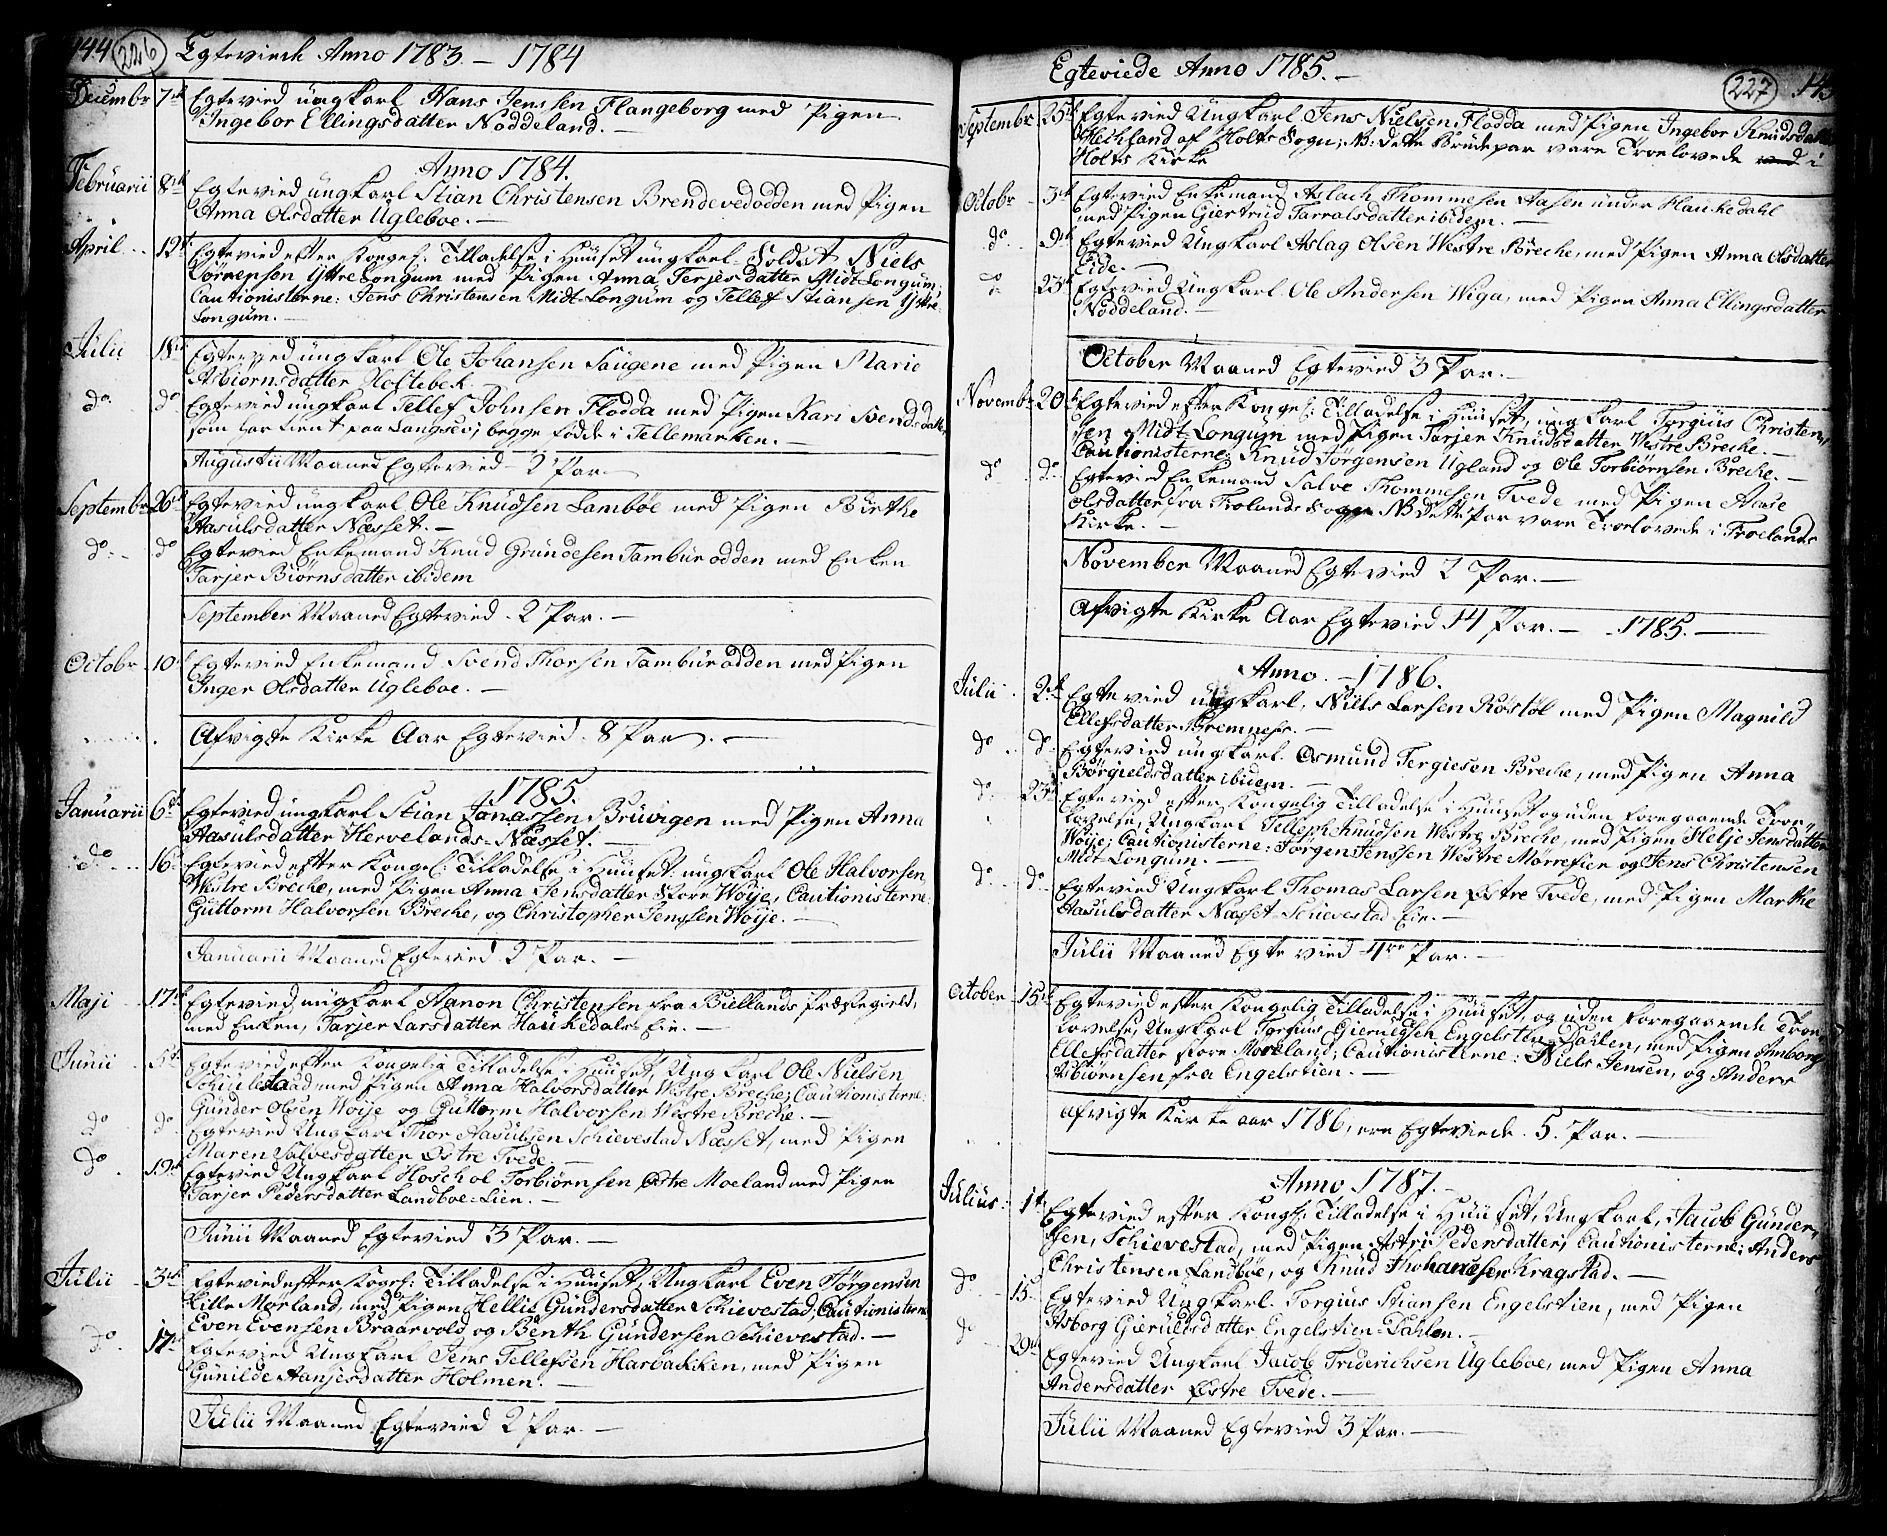 444 226 Egteviede Anno 1783 – 1784
Decembr 7de Egtevied ungkarl Hans Jenssen Flangeborg med Pigen
Ingebor Ellingsdatter Nøddeland. –
Anno 1784.
Februarii 8de Egtevied ungkarl Stian Christensen Brendevedodden med Pigen
Anna Olsdatter Ugleboe. –
April 12te Egtevied efter Kongel: Tilladelse i Huuset ungkarl Soldat Niels
Yttre Longum med Pigen Anna Terjesdatter Midt-Longum,
Cautionisterne: Jens Christensen Midt-Longum og Tellef Stiansen Yttre-
Longum. –
Julii 18de Egtevied ungkarl Ole Johansen Saugene med Pigen Marie
Asbiørnsdatter Holtebek
do. do Egtevied ungkarl Tellef Johnsen Flodda med Pigen Kari Svendsdatter
som har tient paa Langsev; begge fødde i Tellemarken. –
Augustii Maaned Egtevied 2 Par. –
Septembr 26de Egtevied ungkarl Ole Knudsen Lambøe med Pigen Birthe
Aasulsdatter Næsset. –
do. do Egtevied Enkemand Knud Grundesen Tamburodden med Enken
Tarjer Biørnsdatter ibidem
September Maaned Egtevied 2 Par. –
Octobr 10de Egtevied Enkemand Svend Thorsen Tamburodden med Pigen
Inger Olsdatter Ugleboe. –
Afvigte Kirke Aar Egtevied 8 Par. –
1785.
Januarii 6te Egtevied ungkarl Stian Jonassen Bruvigen med Pigen Anna
Aasulsdatter Hervelands-Næsset. –
do 16. Egtevied efter Kongel: Tilladelse i Huuset ungkarl Ole Halvorsen
Westre Breche, med Pigen Anna Jensdatter Store Woije, Cautionisterne:
Guttorm Halvorsen Breche, og Christopher Jenssen Woije. –
Januarii Maaned Egtevied 2 Par. –
Maji 17de Egtevied ungkarl Aanon Christensen fra Biellands Præstegield,
med Enken, Tarjer Larsdatter Haukedals Eie. –
Junii 5te Egtevied efter Kongelig Tilladelse i Huuset, Ungkarl Ole Nielsen
med Pigen Anna Halvorsdatter Westre Breche; Cautionisterne:
Gunder Olsen Woije og Guttorm Halvorsen Westre Breche. –
do do. Egtevied Ungkarl Thor Aasulssen Schievestad Næsset, med Pigen
Maren Salvesdatter Østre Tvede. –
do. 19de Egtevied Ungkarl Hoschol Torbiørnsen Østre Moeland med Pigen
Tarjer Pedersdatter Landboe-Lien. –
Junii Maaned Egtevied 3 Par. –
Julii 3die Egtevied efter Kogel: Tilladelse i Huuset, Ungkarl Even Jørgensen
Lille Mørland, med Pigen Hellie Gundersdatter Schievestad, Cautionisterne
Even Evensen Braarvold og Benth Gundersen Schievestad. –
do. 17de Egtevied Ungkarl Jens Tellefsen Harbackken, med Pigen
Gunilde Aanjesdatter Holmen. –
Julii Maaned Egtevied 2 Par. –
Egteviede Anno 1785. –
227
Septembr 25de Egtevied Ungkarl Jens Nielsen Flodda med Pigen Ingebor Knudsdatter
af Holts Sogn; NB. dette Brudepar vare Troelovede i
Holts Kirke
Octobr 3de Egtevied Enkemand Aslach Thommesen Aasen under Haukedahl
med Pigen Giertrud Tarralsdatter ibidem. –
do. 9de Egtevied Ungkarl Aslag Olsen Westre Breche, med Pigen Anna Olsdatter
Eide. –
do 23de Egtevied Ungkarl Ole Andersen Wiga, med Pigen Anna Ellingsdatter
Nøddeland. –
October Maaned Egtevied 3 Par. –
Novembr 20de Egtevied efter Kongel: Tilladelse i Huuset, ungkarl Torgius Christen-
sen Midt-Longum med Pigen Tarjer Knudsdatter Westre Breche. –
Cautionisterne: Knud Jørgensen Ugland og Ole Torbiørnsen Breche. –
do do. Egtevied Enkemand Salve Thommesen Tvede med Pigen Aase
Olsdatter fra Frolands Sogn NB dette Par vare Troelovede i Froelands
Kirke. –
November Maaned Egtevied 2 Par. –
Afvigte Kirke Aar Egtevied 14 Par. – 1785. –
Anno – 1786.
Julii 2de Egtevied ungkarl, Niels Larsen Røstøl med Pigen Magnild
Ellefsdatter Bremnes. –
do do. Egtevied ungkarl Osmund Tergiesen Breche, med Pigen Anna
Børgieldsdatter ibidem. –
do. 23de Egtevied efter Kongelig Tilladelse i Huuset og uden foregaaende Troe-
lovelse, Ungkarl Telleph Knudsen Westre Breche, med Pigen Helje Jensdatter
Woije; Cautionisterne: Jørgen Jenssen Westre Mørrefier og Jens Christensen
Midt-Longum. –
do do Egtevied Ungkarl Thomas Larsen Østre Tvede, med Pigen Marthe
Aasulsdatter Næsset Schievestad-Eie. –
Julii Maaned Egtevied 4re Par. –
October 15de Egtevied efter Kongelig Tilladelse i Huuset, og uden foregaaende Troe-
lovelse, Ungkarl Torfuns Gieruldsen Engelstien-Dahlen, med Pigen Anborg
Ellefsdatter store Moeland; Cautionisterne: Niels Jensen, og Anders
Asbiørnsen fra Engelstien. –
Afvigte Kirke aar 1786, ere Egteviede 5. Par. –
Anno 1787. –
Julius 1te Egtevied efter Kongl: Tilladelse i Huuset, Ungkarl, Jacob Gunder-
sen, Schievestad, med Pigen Astri Pedersdatter; Cautionisterne: Anders
Christensen Landbøe, og Knud Thohannesen Kragstad. –
do. 15. Egtevied Ungkarl Torgius Stiansen Engelstien, med Pigen
Asborg Gieruldsdatter Engelstien-Dahlen. –
do 29de Egtevied Ungkarl Jacob Friderichsen Ugleboe, med Pigen Anna
Andersdatter Østre Tvede. –
Julii Maaned Egtevied 3 Par. –